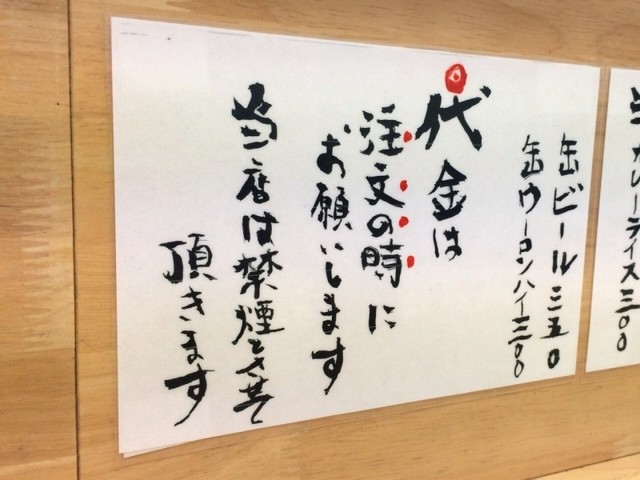 カレーライス三〇〇
缶ビール三五〇
缶ウーロンハイ三〇〇
代金は
注文の時に
お願いします
当店は禁煙とさせて
頂きます